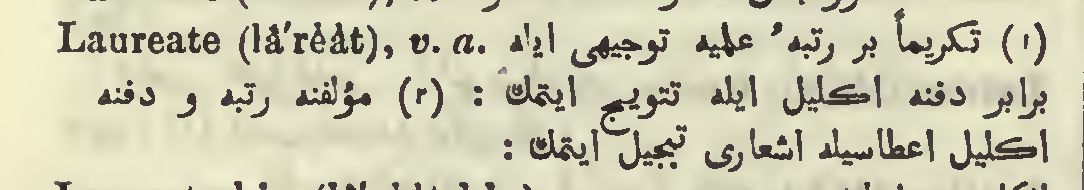 Laureate (lâ′rèât), v. a. (١) تكريماً بر رتبهٔ علميه توجيهى ايله
برابر دفنه اكليل ايله تتويج ايتمك : (٢) مؤلفنه رتبه و دفنه
اكليل اعطاسيله اشعارى تبجيل ايتمك :